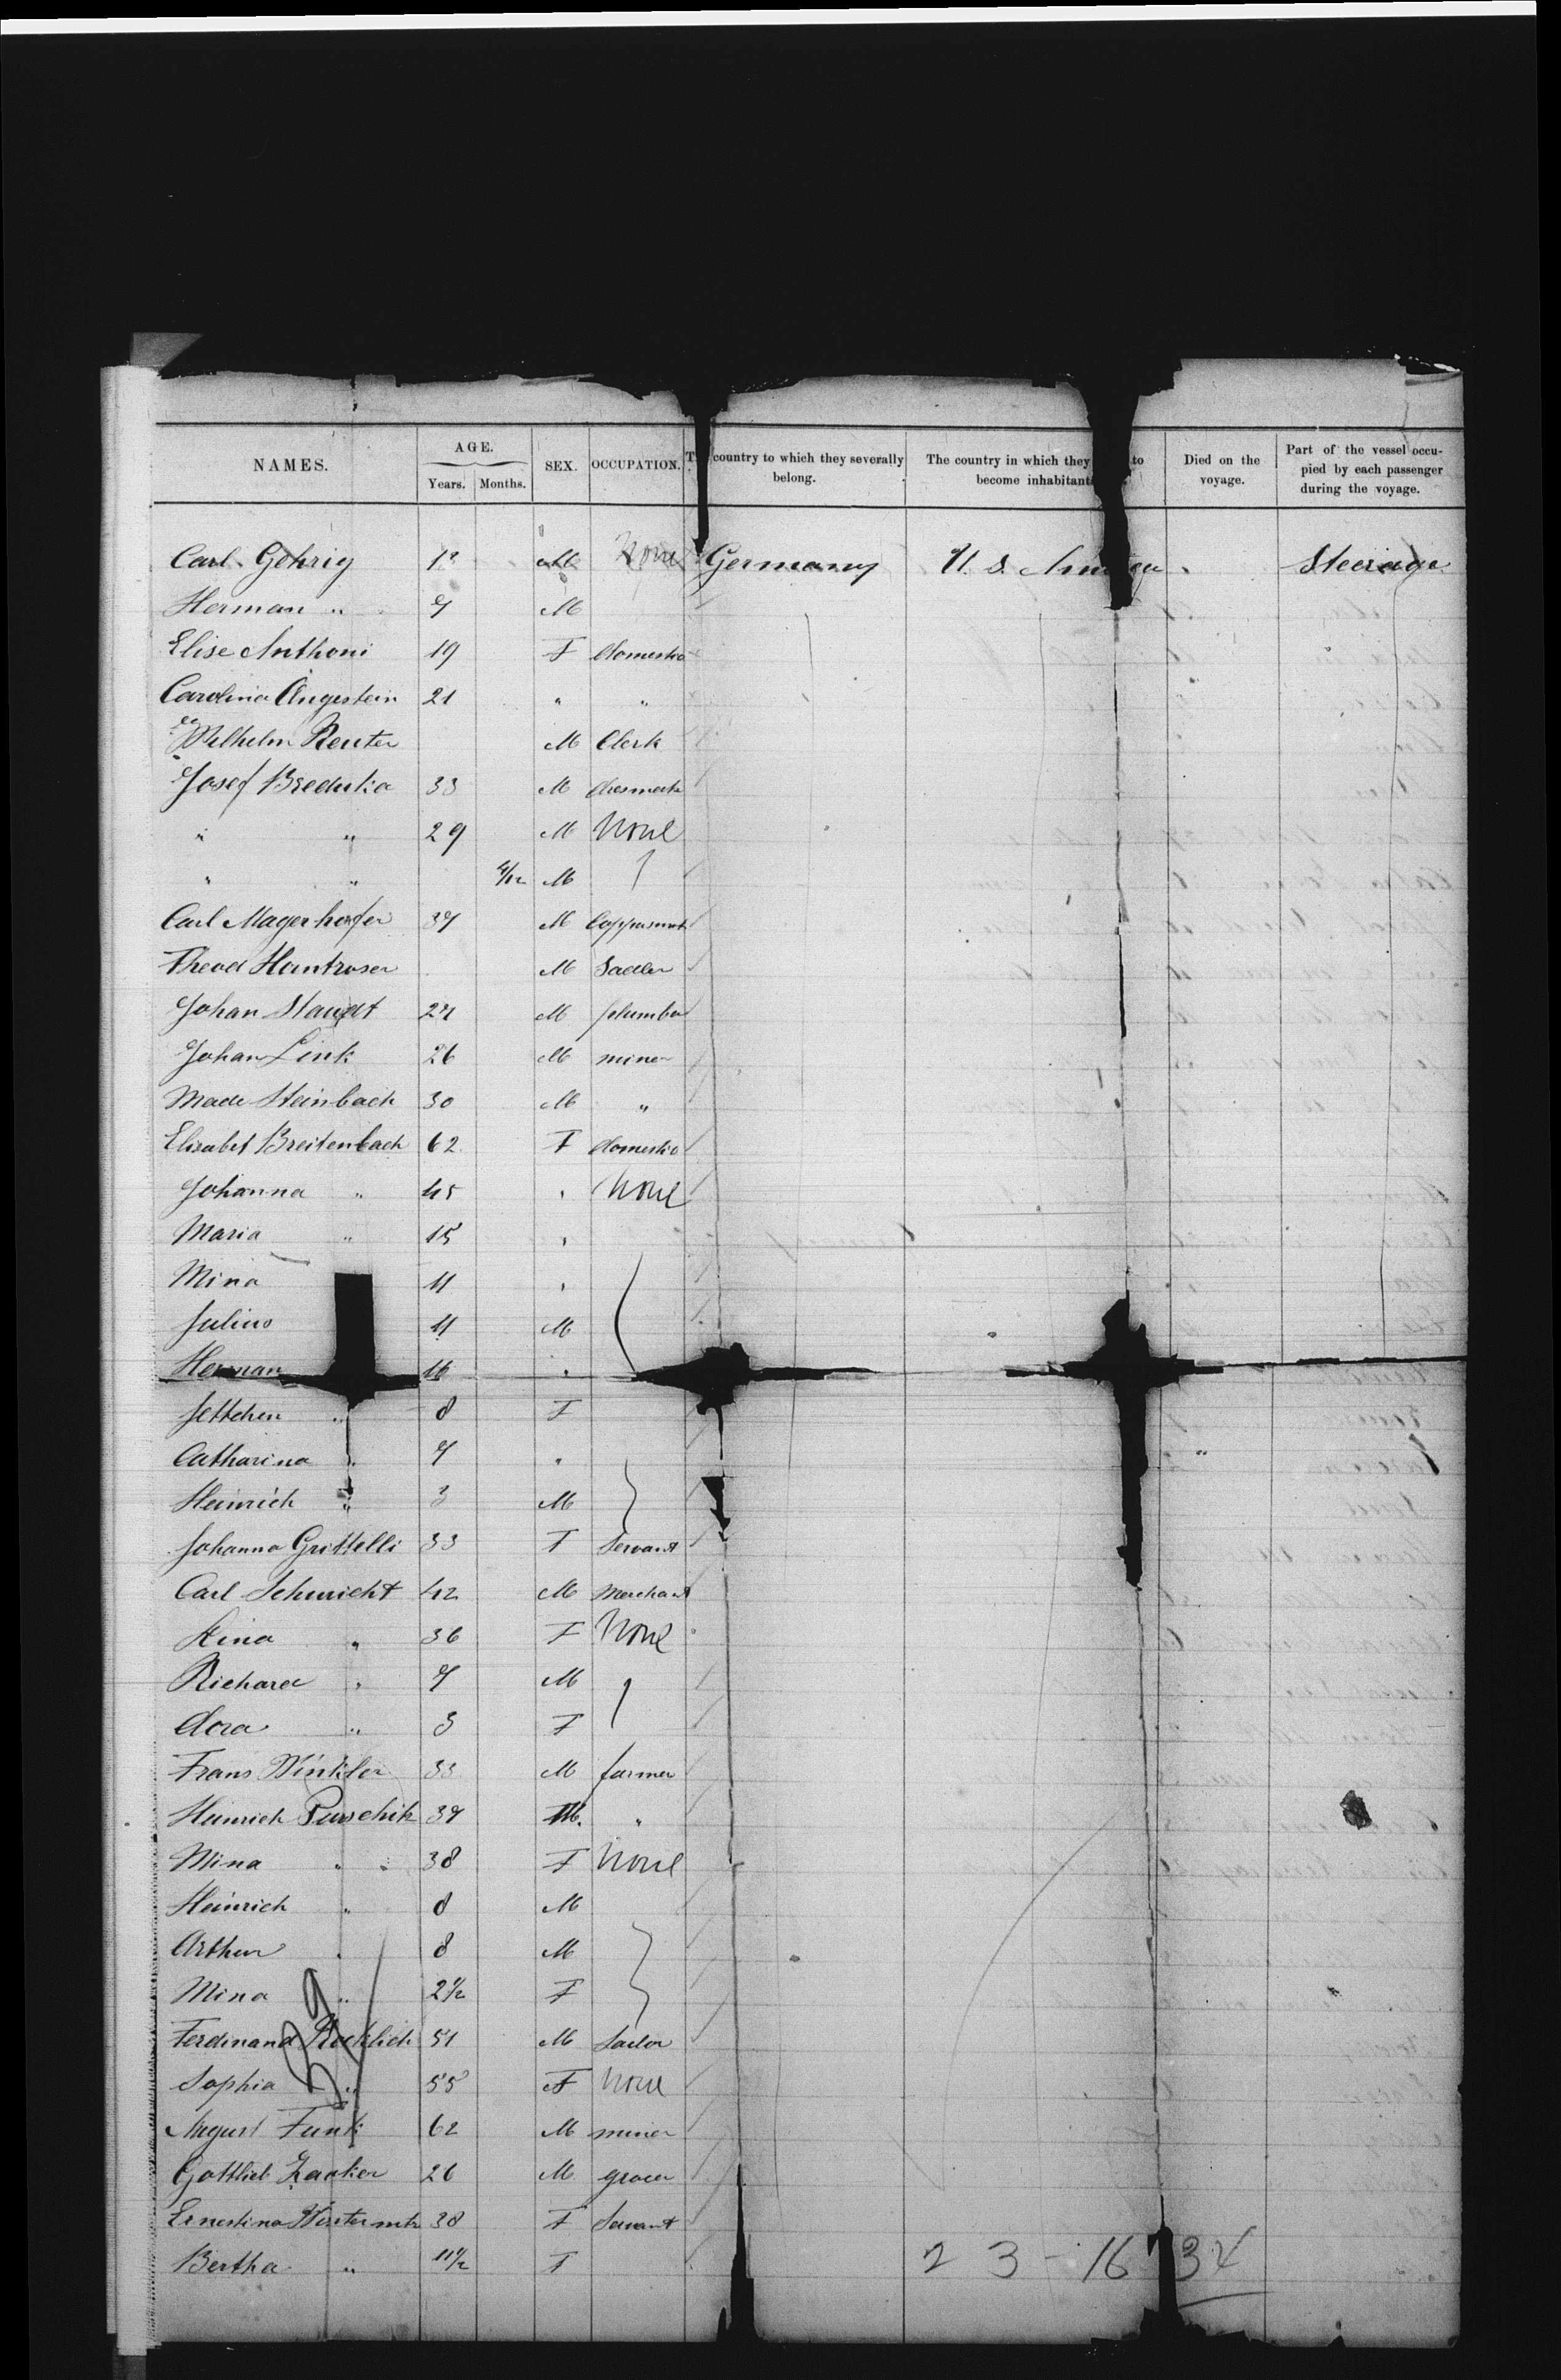 NAMES. AGE. Years. Months. SEX. OCCUPATION. country to which they severally belong. The country in which they to become inhabitant Died on the voyage. Part of the vessel occupied by each passenger during the voyage.
Carl Gehrig M None Germany U. S. Steerage
Herman " 7 M
Elise Anthoni 19 F domestic
Carolina Angestein 21 " "
Wilhelm Reuter M Clerk
Josef 33 M
" " 29 M None
" " 4/12 M
Carl Magerhofer 37 M Coppersmith
Theod M Sadler
Johan Staudt 27 M plumber
Johan Link 26 M miner
Made Steinbach 30 M "
Elisabet Breitenbach 62 F domestic
Johanna " 45 " None
Maria " 15 "
Mina 11 "
Julius 11 M
Herman 16 "
Jettchen " 8 F
Catharina " 7 "
Heinrich " 3 M
Johanna Grittelli 33 F Servant
Carl Schmicht 42 M Merchant
Lina " 36 F None
Richard " 7 M
Dora " 3 F
Frans Winkler 33 M farmer
Heinrich Purschik 37 M. "
Mina " " 38 F None
Heinrich " 8 M
Arthur " 8 M
Mina " 2½ F
39
Ferdinand 51 M
Sophia " 55 F None
August Funk 62 M miner
Gottlieb Zacker 26 M grocer
Ernestina 38 F Servant
Bertha " 11½ F
2 3 - 16 34